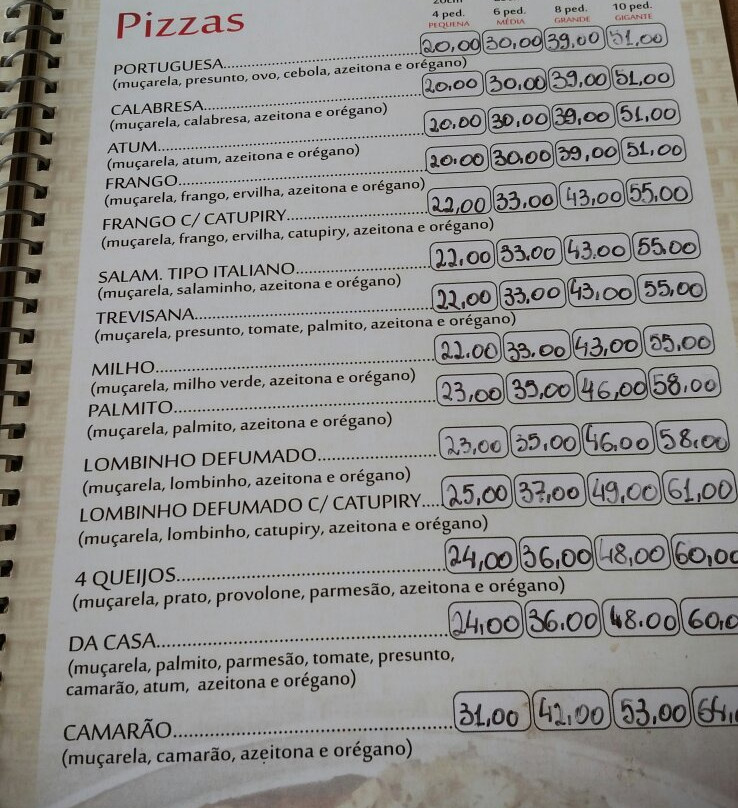 Pizzas
4 ped. 6 ped. 8 ped. 10 ped.
PEQUENA MÉDIA GRANDE GIGANTE
PORTUGUESA 20,00 30,00 39,00 51,00
(muçarela, presunto, ovo, cebola, azeitona e orégano)
CALABRESA 20,00 30,00 39,00 51,00
(muçarela, calabresa, azeitona e orégano)
ATUM 20,00 30,00 39,00 51,00
(muçarela, atum, azeitona e orégano)
FRANGO 20,00 30,00 39,00 51,00
(muçarela, frango, ervilha, azeitona e orégano)
FRANGO C/ CATUPIRY 22,00 33,00 43,00 55,00
(muçarela, frango, ervilha, catupiry, azeitona e orégano)
SALAM. TIPO ITALIANO 22,00 33,00 43,00 55,00
(muçarela, salaminho, azeitona e orégano)
TREVISANA 22,00 33,00 43,00 55,00
(muçarela, presunto, tomate, palmito, azeitona e orégano)
MILHO 22,00 33,00 43,00 55,00
(muçarela, milho verde, azeitona e orégano)
PALMITO 23,00 35,00 46,00 58,00
(muçarela, palmito, azeitona e orégano)
LOMBINHO DEFUMADO 23,00 35,00 46,00 58,00
(muçarela, lombinho, azeitona e orégano)
LOMBINHO DEFUMADO C/ CATUPIRY 25,00 37,00 49,00 61,00
(muçarela, lombinho, catupiry, azeitona e orégano)
4 QUEIJOS 24,00 36,00 48,00 60,00
(muçarela, prato, provolone, parmesão, azeitona e orégano)
DA CASA 24,00 36,00 48,00 60,0
(muçarela, palmito, parmesão, tomate, presunto,
camarão, atum, azeitona e orégano)
CAMARÃO 31,00 42,00 53,00 64,
(muçarela, camarão, azeitona e orégano)